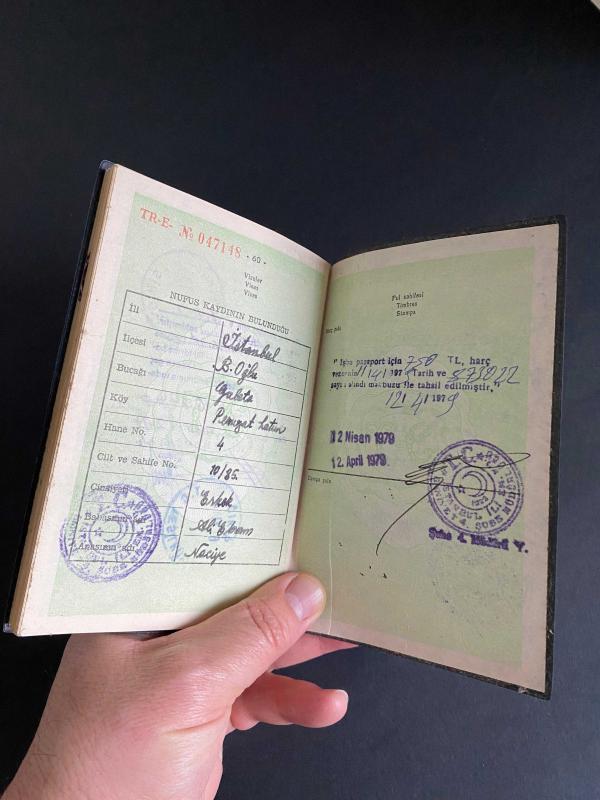 TR-E- № 047148 - 60 -
Vizeler
Visas
Visas
NUFUS KAYDININ BULUNDUĞU
İli İstanbul
İlçesi B.Oğlu
Bucağı Galata
Köy
Hane No. 4
Cilt ve Sahife No. 10/85.
Cinsiyeti Erkek
Babasının adı Ali Ekrem
Anasının adı Naciye
Pul sahifesi
Timbres
Stamps
" İşbu pasaport için 750 TL, harç
11/4/1979 Tarih ve
sayılı alındı makbuzu ile tahsil edilmiştir."
12/4/1979
12 Nisan 1979
12. April 1979
Şube 4. Müdürü Y.